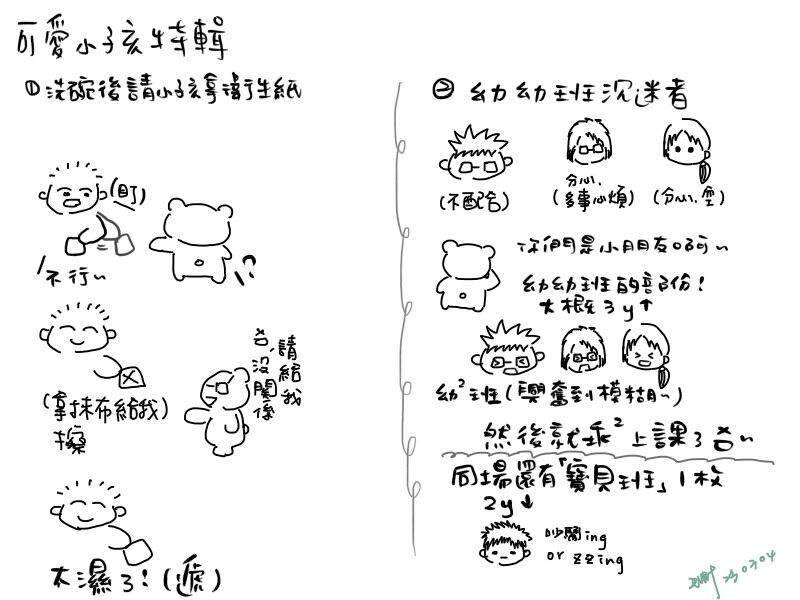 可愛小孩特輯
①洗碗後請小孩拿衛生紙
(盯)
不行~
!?
(拿抹布給我)
擦
請給我
呃,沒關係
太濕了!(遞)
② 幼幼班沉迷者
(不配合)
分心,
(多事心煩)
(分心,空)
你們是小朋友啊~
幼幼班的部份!
大概3y↑
幼²班(興奮到模糊~)
然後就乖²上課了
同場還有「寶貝班」1枚
2y↓
吵鬧ing
or zzing
0304